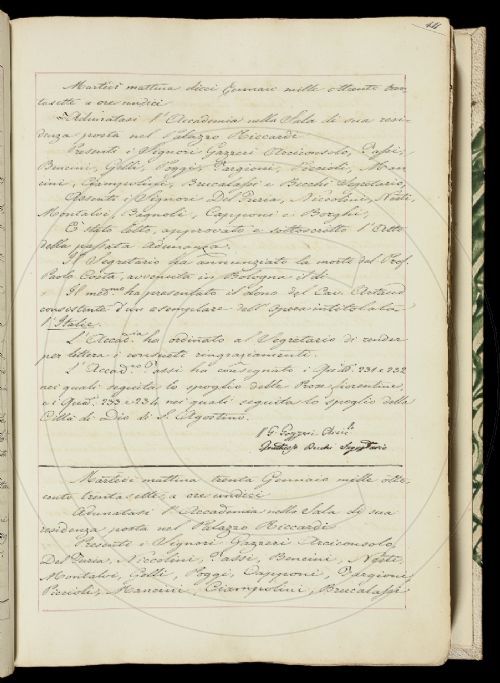 Martedì mattina dieci Gennaro mille ottocento tren-
tasette a ore undici
Adunatasi l'Accademia nella Sala di sua resi-
denza posta nel Palazzo Riccardi
Presenti i Signori Gazzeri Arciconsolo, Tassi,
Bencini, Gelli, Poggi, Targioni, Piccioli, Man-
cini, Ciampolini, Brucalassi e Becchi Segretario,
Assente i Signori Del Furia, Niccolini, Nesti,
Montalvi, Bagnoli, Capponi e Borghi,
È stato letto, approvato e sottoscritto l'Atto
della passata Adunanza.
Il Segretario ha annunziato la morte del Prof.
Paolo Costa, avvenuta in Bologna il dì
Il med.mo ha presentato il dono del Cav.
consistente d'un esemplare dell'Opera intitolata
l'Italie.
L'Accad.ia ha ordinato al Segretario di render
per lettera i consueti ringraziamenti.
L'Accad.co Tassi ha consegnato i Quad.i 231 e 232
nei quali seguita lo spoglio delle Prose fiorentine,
e i Quad. 233 e 234 nei quali seguita lo spoglio della
Città di Dio di S. Agostino.
G. Gazzeri Arci.lo
Becchi Segretario
Martedì mattina trenta Gennaio mille otto-
cento trentasette, a ore undici
Adunatasi l'Accademia nella Sala di sua
residenza posta nel Palazzo Riccardi
Presenti i Signori Gazzeri Arciconsolo,
Del Furia, Niccolini, Tassi, Bencini, Nesti,
Montalvi, Gelli, Poggi, Capponi, Targioni,
Piccioli, Mancini, Ciampolini, Brucalassi